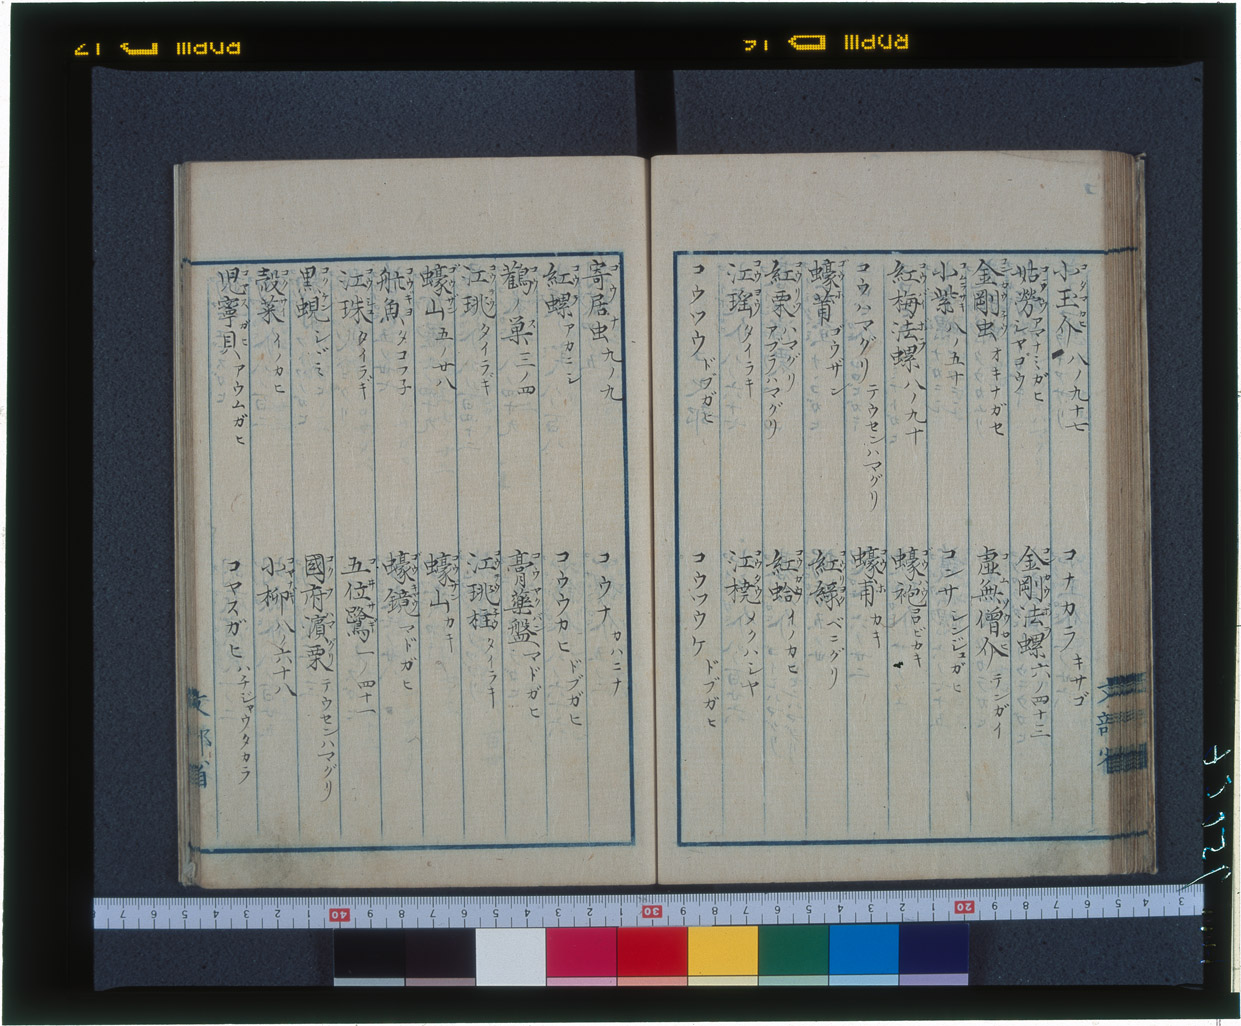 小玉介 八ノ九十七
コナカラ キサゴ
姑勞 アマナミガヒ シマロウ
金剛法螺 六ノ四十三
金剛虫 オキナガセ
虚無僧介 テンガイ
小紫 八ノ五十
コンサ シンジュガヒ
紅梅法螺 八ノ九十
蠔袍 コロビカキ
コウハマグリ テウセンハマグリ
蠔甫 カキ
蠔莆 ゴウザン
紅綠 ベニグリ
紅栗 ハマグリ アブラハマグリ
紅蛤 イノカヒ
江瑤 タイラギ
江橈 メクハシヤ
コウツウ ドブガヒ
コウツウケ ドブガヒ
寄居虫 九ノ九
コウナ カハニナ
紅螺 アカニシ
コウウカヒ ドブガヒ
鸛ノ巣 三ノ四
膏藥盤 マドガヒ
江珧 タイラギ
江珧柱 タイラギ
蠔山 五ノ廿八
蠔山 カキ
魚 タコフ子
蠔鏡 マドガヒ
江珠 タイラギ
五位鷺 一ノ四十一
黒蜆 シジミ
國府濱栗 テウセンハマグリ
殻菜 イノカヒ
小柳 八ノ六十八
児寧貝 アウムガヒ
コマスガヒ ハチジャウタカラ
文部省
文部省
RNPIII 16
RNPIII 17